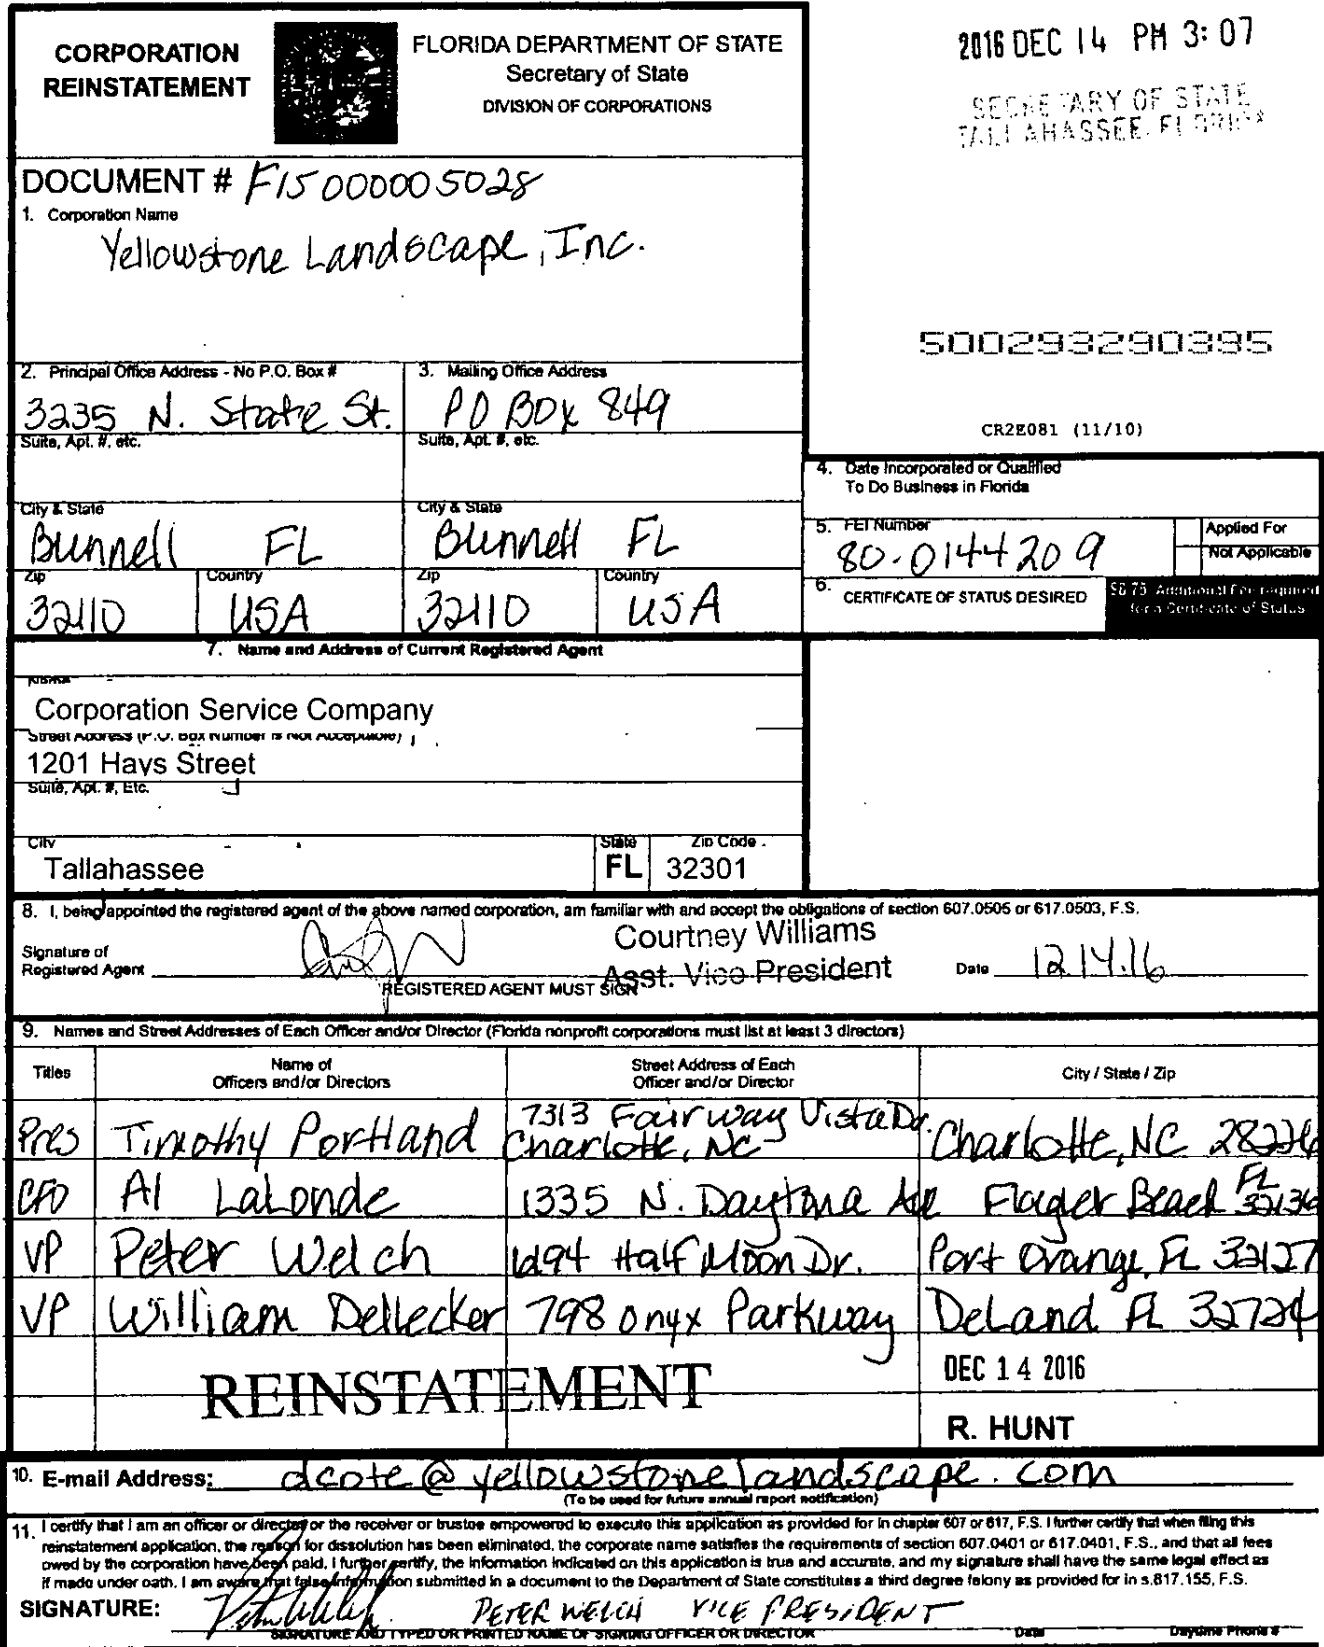 CORPORATION
REINSTATEMENT
FLORIDA DEPARTMENT OF STATE
Secretary of State
DIVISION OF CORPORATIONS
2016 DEC 14 PM 3:07
SECRETARY OF STATE
TALLAHASSEE, FLORIDA
DOCUMENT # F15000005028
1. Corporation Name
Yellowstone Landscape, Inc.
500293290395
CR2E081 (11/10)
2. Principal Office Address - No P.O. Box #
3235 N. State St.
Suite, Apt. #, etc.
3. Mailing Office Address
PO BOX 849
Suite, Apt. #, etc.
City & State
Bunnell FL
City & State
Bunnell FL
Zip
32110
Country
USA
Zip
32110
Country
USA
4. Date Incorporated or Qualified
To Do Business in Florida
5. FEI Number
80-0144209
Applied For
Not Applicable
6. CERTIFICATE OF STATUS DESIRED
$8.75 Additional Fee required
for a Certificate of Status
7. Name and Address of Current Registered Agent
Name
Corporation Service Company
Street Address (P.O. Box Number is Not Acceptable)
1201 Hays Street
Suite, Apt. #, Etc.
City
Tallahassee
State
FL
Zip Code
32301
8. I, being appointed the registered agent of the above named corporation, am familiar with and accept the obligations of section 607.0505 or 617.0503, F.S.
Signature of
Registered Agent
Courtney Williams
Asst. Vice President
REGISTERED AGENT MUST SIGN
Date 12.14.16
9. Names and Street Addresses of Each Officer and/or Director (Florida nonprofit corporations must list at least 3 directors)
Titles
Name of
Officers and/or Directors
Street Address of Each
Officer and/or Director
City / State / Zip
Pres Timothy Portland 7313 Fairway Vista Dr. Charlotte, NC Charlotte, NC 28226
CFO Al LaLonde 1335 N. Daytona Ave Flagler Beach FL 32136
VP Peter Welch 6294 Half Moon Dr. Port Orange, FL 32127
VP William Dellecker 798 Onyx Parkway DeLand FL 32724
REINSTATEMENT
DEC 14 2016
R. HUNT
10. E-mail Address: dcote@yellowstonelandscape.com
(To be used for future annual report notification)
11. I certify that I am an officer or director or the receiver or trustee empowered to execute this application as provided for in chapter 607 or 617, F.S. I further certify that when filing this
reinstatement application, the reason for dissolution has been eliminated, the corporate name satisfies the requirements of section 607.0401 or 617.0401, F.S., and that all fees
owed by the corporation have been paid. I further certify, the information indicated on this application is true and accurate, and my signature shall have the same legal effect as
if made under oath. I am aware that false information submitted in a document to the Department of State constitutes a third degree felony as provided for in s.817.155, F.S.
SIGNATURE: PETER WELCH VICE PRESIDENT
SIGNATURE AND TYPED OR PRINTED NAME OF SIGNING OFFICER OR DIRECTOR
Date
Daytime Phone #